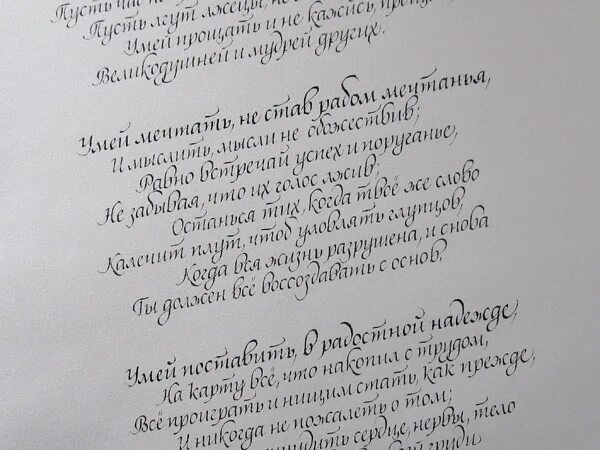 Пусть час не
Пусть лгут лжецы, не
Умей прощать и не кажись, прощая,
Великодушней и мудрей других.
Умей мечтать, не став рабом мечтанья,
И мыслить, мысли не обожествив;
Равно встречай успех и поруганье,
Не забывая, что их голос лжив;
Останься тих, когда твоё же слово
Калечит плут, чтоб уловлять глупцов,
Когда вся жизнь разрушена, и снова
Ты должен всё воссоздавать с основ.
Умей поставить, в радостной надежде,
На карту всё, что накопил с трудом,
Всё проиграть и нищим стать, как прежде,
И никогда не пожалеть о том;
сердце, нервы, тело
груди